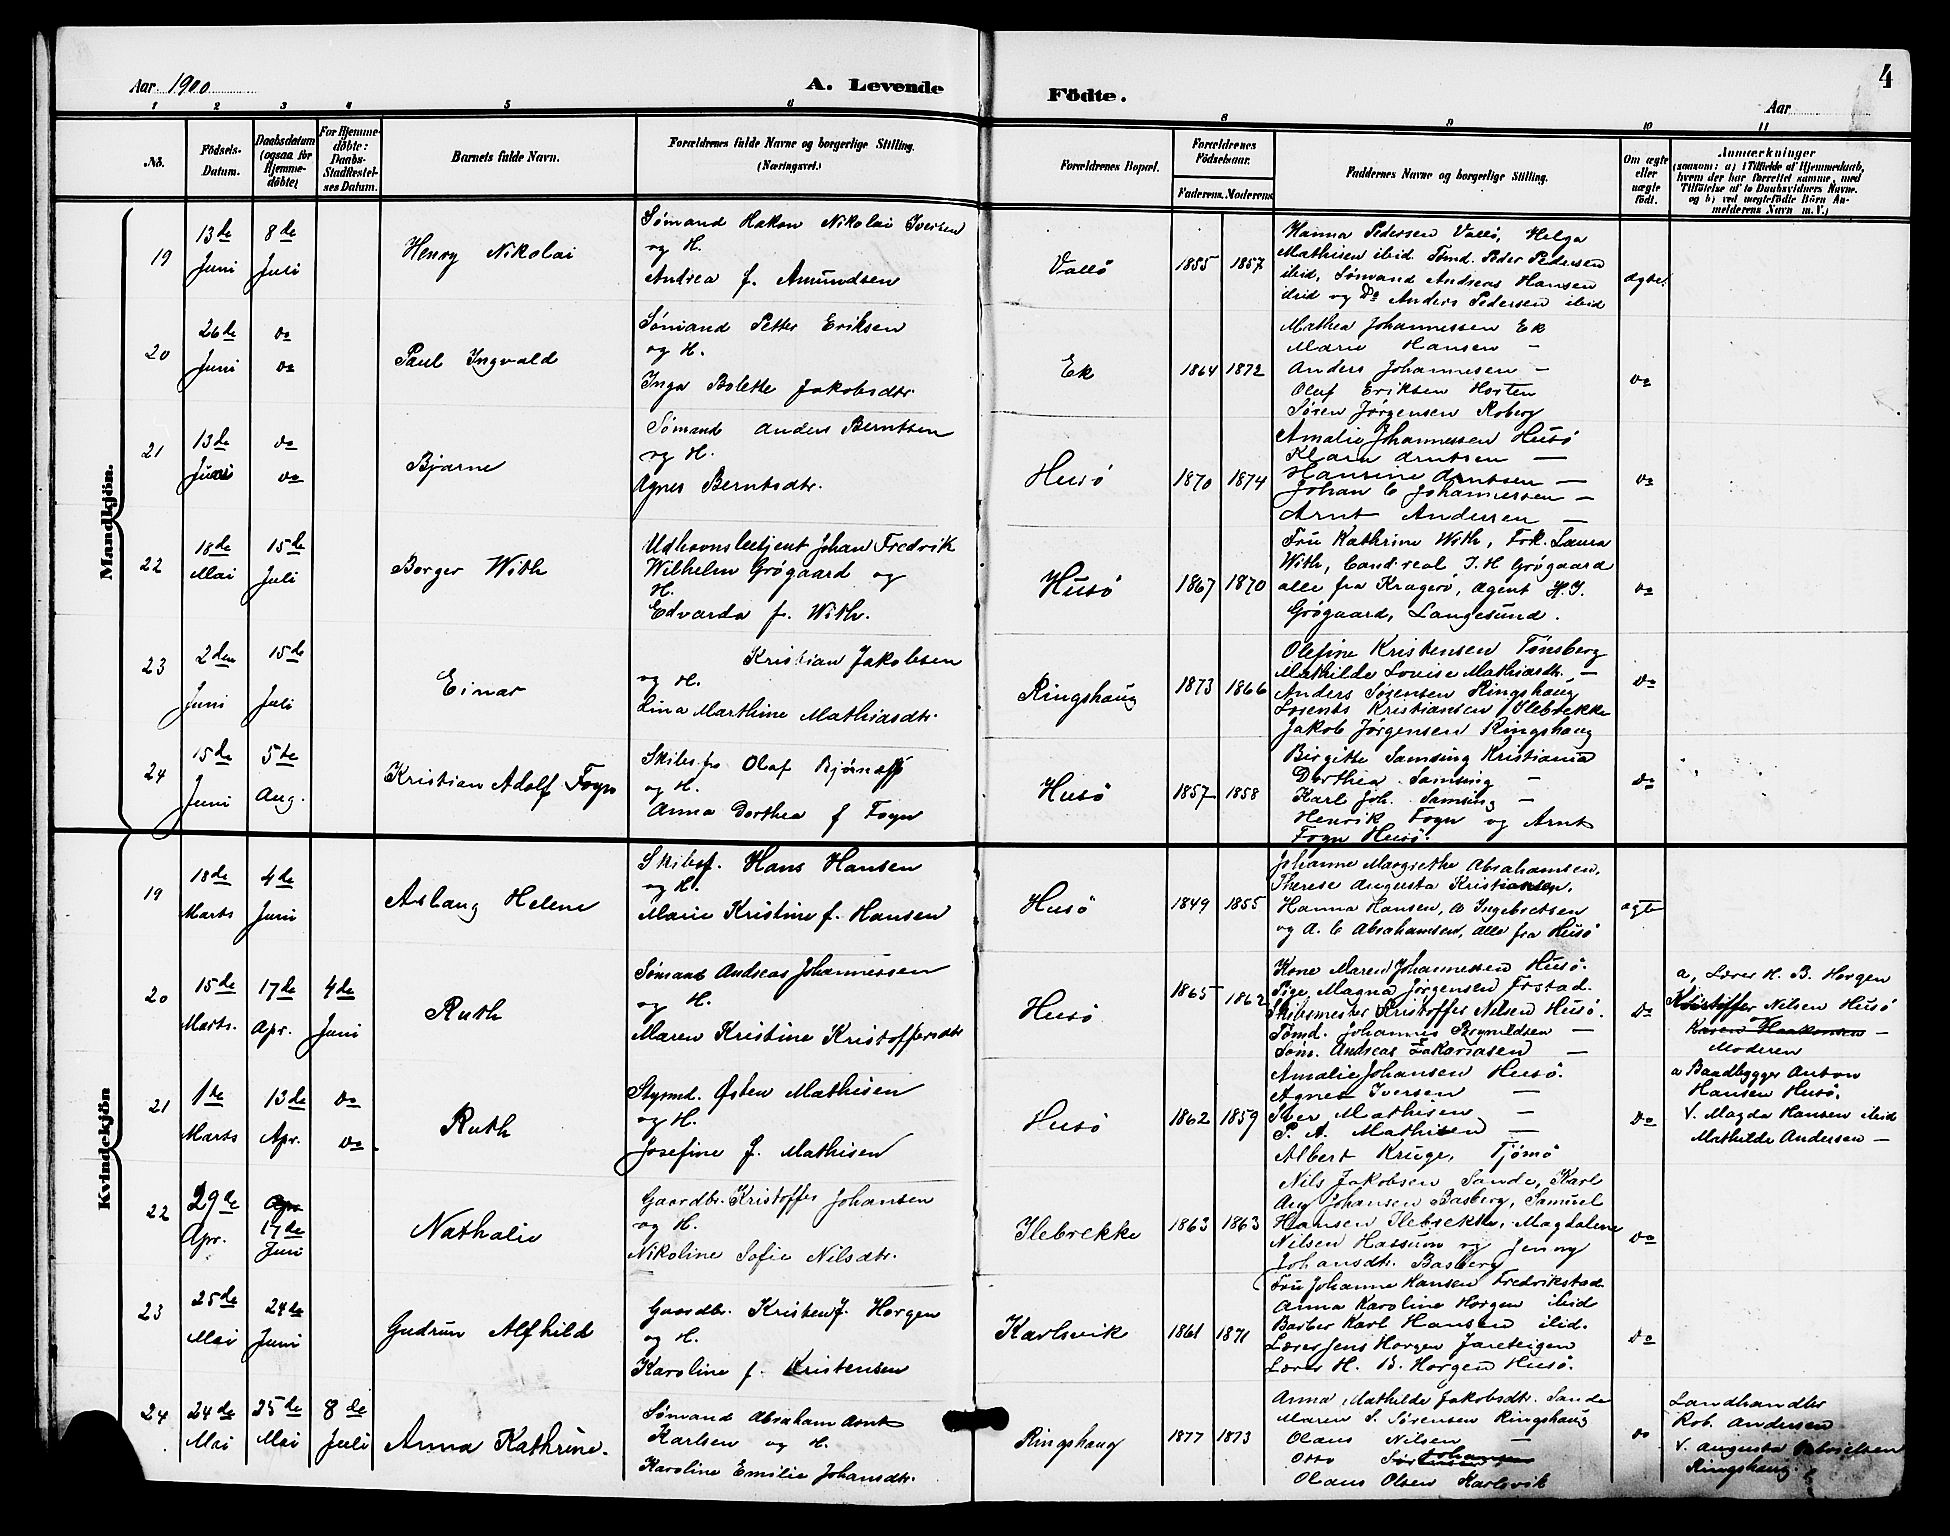 Aar 1900
A. Levende
Födte.
Aar
4
1 2 3 4 5 6 8 9 10 11
No.
Födsels-
Datum.
Daabsdatum
(ogsaa for
Hjemme-
döbte)
For Hjemme-
döbte:
Daabs-
Stadfæstel-
ses Datum.
Barnets fulde Navn.
Forældrenes fulde Navne og borgerlige Stilling.
(Næringsvei.)
Forældrenes Bopæl.
Forældrenes
Födselsaar.
Faderens. Moderens
Faddernes Navne og borgerlige Stilling.
Om ægte
eller
uægte
födt.
Anmærkninger
(saasom: a) i Tilfælde af Hjemmedaab,
hvem der har forrettet samme, med
Tilföielse af to Daabsvidners Navne.
og b) ved uegtefödte Börn An-
melderens Navn m. V.)
Mandkjön.
19
13de
Juni
8de
Juli
Henry Nikolai
Sømand Hakon Nikolai Iversen
og H.
Andrea f. Amundsen
Vallö
1855 1857
Hanna Pedersen Vallö, Helga
Mathisen ibid Tömd. Peder Pedersen
ibid, Sømand Andreas Hansen
ibid og Do Anders Pedersen ibid
ægte.
20
26de
Juni
do
do
Paul Ingvald
Sømand Petter Eriksen
og H.
Inga Bolette Jakobsdtr.
Ek
1864 1872
Mathea Johannessen Ek
Marie Hansen —
Anders Johannesen —
Oluf Eriksen Horten
Søren Jørgensen Roberg
do
21
13de
Juni
do
do
Bjarne
Sømand Anders Berntsen
og H.
Agnes Berntsdtr.
Husö
1870 1874
Amalie Johannessen Husö
Klara Arntsen —
Hansine Arntsen —
Johan C Johannessen —
Arnt Andersen —
do
22
18de
Mai
15de
Juli
Borger With
Udhavnsbetjent Johan Fredrik
Wilhelm Grögaard og
H.
Edvarda f. With.
Husö
1867 1870
Fru Kathrine With, Frk. Laura
With, Cand real J. H Grögaard
alle fra Kragerö, Agent H. J.
Grögaard, Langesund.
do
23
2den
Juni
15de
Juli
Einar
Kristian Jakobsen
og H.
Lina Marthine Mathiasdtr.
Ringshaug
1873 1866
Olefine Kristensen Tönsberg
Mathilde Lovise Mathiasdtr. —
Anders Sørensen Ringshaug
Lorents Kristiansen Ilebrekke
Jakob Jørgensen Ringshaug
do
24
15de
Juni
5te
Aug.
Kristian Adolf Fogn
Skibsf. Olaf
og H.
Anna Dorthea f Fogn
Husö
1857 1858
Birgitte Samsing Kristiania
Dorthea Samsing —
Karl Joh. Samsing —
Henrik Fogn og Arnt
Fogn Husö.
do
Kvindekjön
19
18de
Marts
4de
Juni
Aslaug Helene
Skibsf. Hans Hansen
og H.
Marie Kristine f. Hansen
Husö
1849 1855
Johanne Margrethe Abrahamsen,
Therese Augusta Kristiansen,
Hanna Hansen, A Ingebretsen
og A. C Abrahamsen, alle fra Husö
ægte
20
15de
Marts.
17de
Apr.
4de
Juni
Ruth
Sømand Andreas Johannessen
og H.
Maren Kristine Kristoffersdtr
Husö
1865 1862
Kone Maren Johannessen Husö.
Pige Magna Jørgensen
Skibsmester Kristoffer Nilsen Husö.
Tömd. Johannes Brynildsen —
Søm. Andreas Zakariasen —
do
a, Lærer H. B. Horgen
Kristoffer Nilsen Husö
Moderen
21
1te
Marts
13de
Apr.
do
do
Ruth
Styrmd. Østen Mathisen
og H.
Josefine f. Mathisen
Husö
1862 1859
Amalie Johansen Husö.
Agnes Iversen —
Iver Mathisen —
P. A. Mathisen —
Albert Kruge, Tjömö
do
a Baadbygger Anton
Hansen Husö.
V. Magda Hansen ibid
Mathilde Andersen —
22
29de
Apr.
Apr
17de
Juni
Nathalie
Gaardbr. Kristoffer Johansen
og H.
Nikoline Sofie Nilsdtr.
Ilebrekke
1863 1863
Nils Jakobsen Sande, Karl
Aug Johansen Basberg, Samuel
Hansen Ilebrekke, Magdalene
Nilsen Hassum og Jenny
Johansdtr. Basberg
do
23
25de
Mai
24de
Juni
Gudrun Alfhild
Gaardbr. Kristen J. Horgen
og H.
Karoline f. Kristensen
Karlsvik
1861 1871
Fru Johanne Hansen Fredrikstad.
Anna Karoline Horgen ibid
Barber Karl Hansen ibid.
Lærer Jens Horgen Jareteigen
Lærer H. B. Horgen Husö.
do
24
24de
Mai
25de
Mai
8de
Juli
Anna Kathrine.
Sømand Abraham Arnt
Karlsen og H.
Karoline Emilie Johansdtr.
Ringshaug
1877 1873
Anna Mathilde Jakobsdtr. Sande
Maren S. Sørensen Ringshaug
Olaus Nilsen —
Otto
Olaus Olsen Karlsvik
do
Landhandler
Rob. Andersen
V. Augusta
Ringshaug.